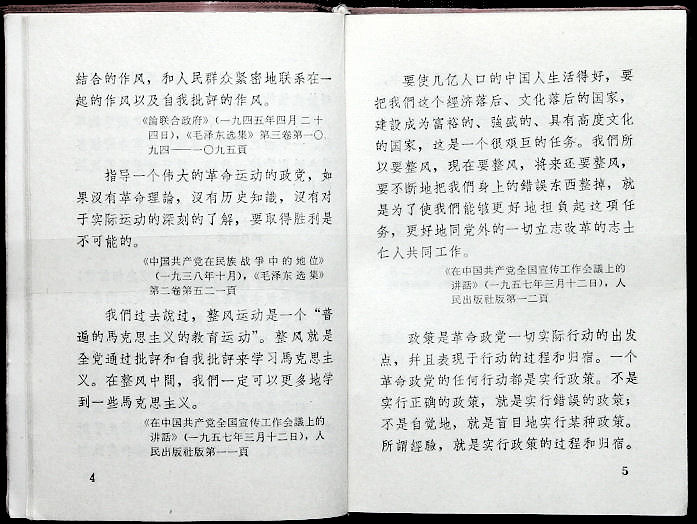 結合的作风，和人民群众紧密地联系在一
起的作风以及自我批評的作风。
《論联合政府》(一九四五年四月二十
四日)，《毛泽东选集》第三卷第一〇
九四——一〇九五頁
指导一个伟大的革命运动的政党，如
果沒有革命理論，沒有历史知識，沒有对
于实际运动的深刻的了解，要取得胜利是
不可能的。
《中国共产党在民族战爭中的地位》
(一九三八年十月)，《毛泽东选集》
第二卷第五二一頁
我們过去說过，整风运动是一个“普
遍的馬克思主义的教育运动”。整风就是
全党通过批評和自我批評来学习馬克思主
义。在整风中間，我們一定可以更多地学
到一些馬克思主义。
《在中国共产党全国宣传工作会議上的
讲話》(一九五七年三月十二日)，人
民出版社版第一一頁
4
要使几亿人口的中国人生活得好，要
把我們这个經济落后、文化落后的国家，
建設成为富裕的、強盛的、具有高度文化
的国家，这是一个很艰巨的任务。我們所
以要整风，現在要整风，将来还要整风，
要不断地把我們身上的錯誤东西整掉，就
是为了使我們能够更好地担負起这項任
务，更好地同党外的一切立志改革的志士
仁人共同工作。
《在中国共产党全国宣传工作会議上的
讲話》(一九五七年三月十二日)，人
民出版社版第一二頁
政策是革命政党一切实际行动的出发
点，并且表現于行动的过程和归宿。一个
革命政党的任何行动都是实行政策。不是
实行正确的政策，就是实行錯誤的政策；
不是自觉地，就是盲目地实行某种政策。
所謂經驗，就是实行政策的过程和归宿。
5